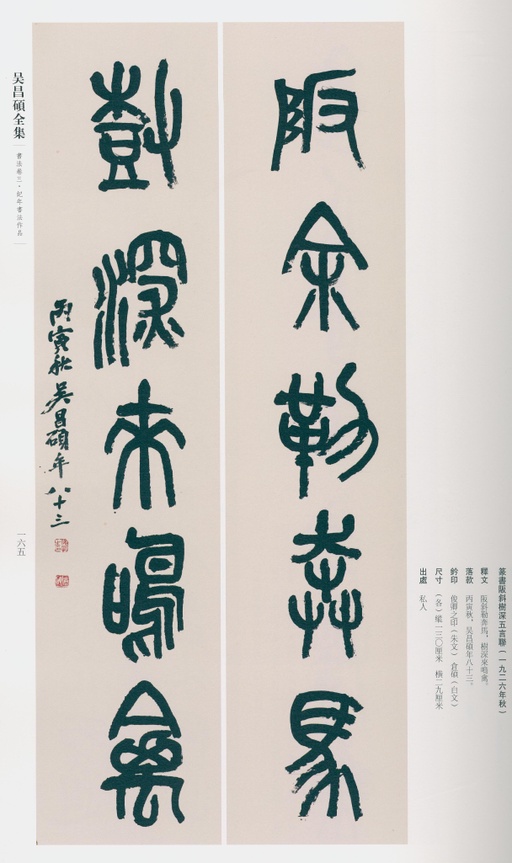 篆書阪斜樹深五言聯(一九二六年秋)
釋文 阪斜勒奔馬,樹深來鳴禽。
落款 丙寅秋,吴昌碩年八十三。
鈐印 俊卿之印(朱文) 倉碩(白文)
尺寸 (各)縱一三〇厘米 橫二九厘米
出處 私人
阪余勒奔馬
尌深來鳴禽
丙寅秋吴昌碩年八十三
吴昌碩全集
書法卷三·紀年書法作品
一六五